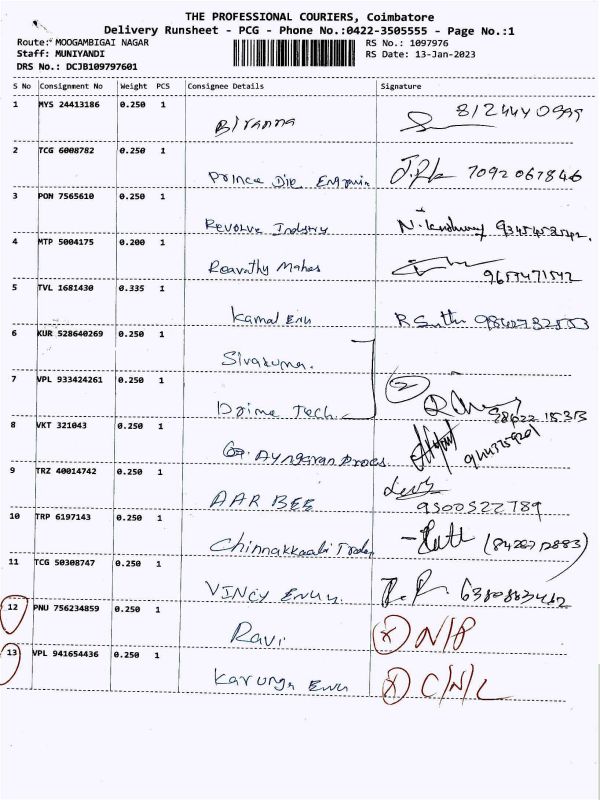 THE PROFESSIONAL COURIERS, Coimbatore
Delivery Runsheet - PCG - Phone No.:0422-3505555 - Page No.:1
Route: MOOGAMBIGAI NAGAR RS No.: 1097976
Staff: MUNIYANDI RS Date: 13-Jan-2023
DRS No.: DCJB109797601
S No Consignment No Weight PCS Consignee Details Signature
1 MYS 24413186 0.250 1
2 TCG 6008782 0.250 1 Prince Die 7092067846
3 PON 7565610 0.250 1 Revolve Industry
4 MTP 5004175 0.200 1 Reavathy Mahes 9677471542
5 TVL 1681430 0.335 1 Kamal Enu
6 KUR 528640269 0.250 1 Sivakuma.
7 VPL 933424261 0.250 1 Dsime Tech. 2
8 VKT 321043 0.250 1 Ayngaran
9 TRZ 40014742 0.250 1 AAR BEE 9500522789
10 TRP 6197143 0.250 1 Chinnakkaali
11 TCG 50308747 0.250 1 VINCY
12 PNU 756234859 0.250 1 Ravi X N/P
13 VPL 941654436 0.250 1 Karunya Enu X C/N/L